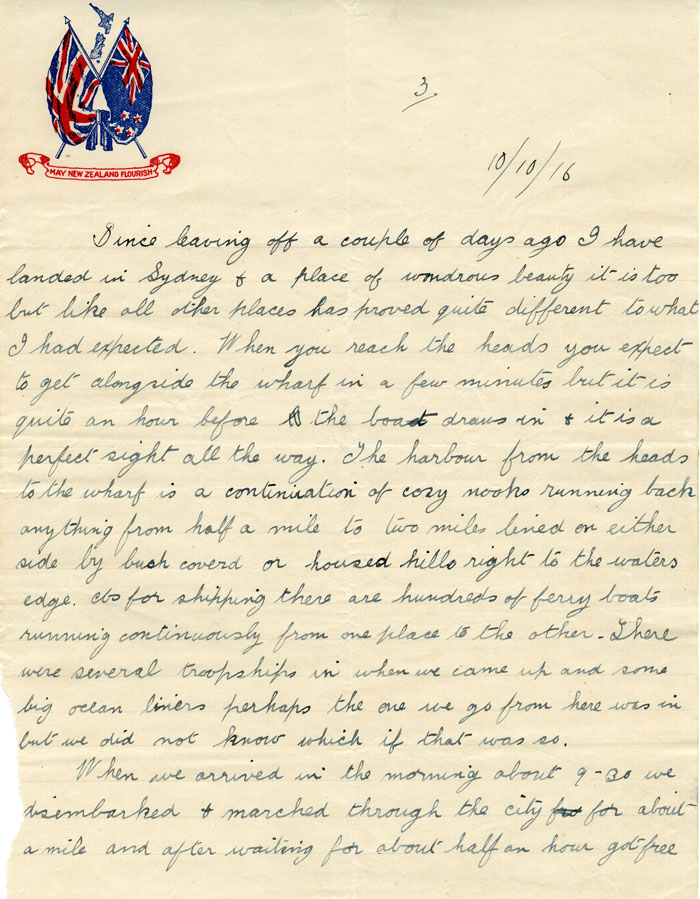 MAY NEW ZEALAND FLOURISH
3
10/10/16
Since leaving off a couple of days ago I have
landed in Sydney & a place of wondrous beauty it is too
but like all other places has proved quite different to what
I had expected. When you reach the heads you expect
to get alongside the wharf in a few minutes but it is
quite an hour before the boat draws in & it is a
perfect sight all the way. The harbour from the heads
to the wharf is a continuation of cozy nooks running back
anything from half a mile to two miles lined on either
side by bush coverd or housed hills right to the waters
edge. As for shipping there are hundreds of ferry boats
running continuously from one place to the other. There
were several troopships in when we came up and some
big ocean liners perhaps the one we go from here was in
but we did not know which if that was so.
When we arrived in the morning about 9-30 we
disembarked & marched through the city for about
a mile and after waiting for about half an hour got free